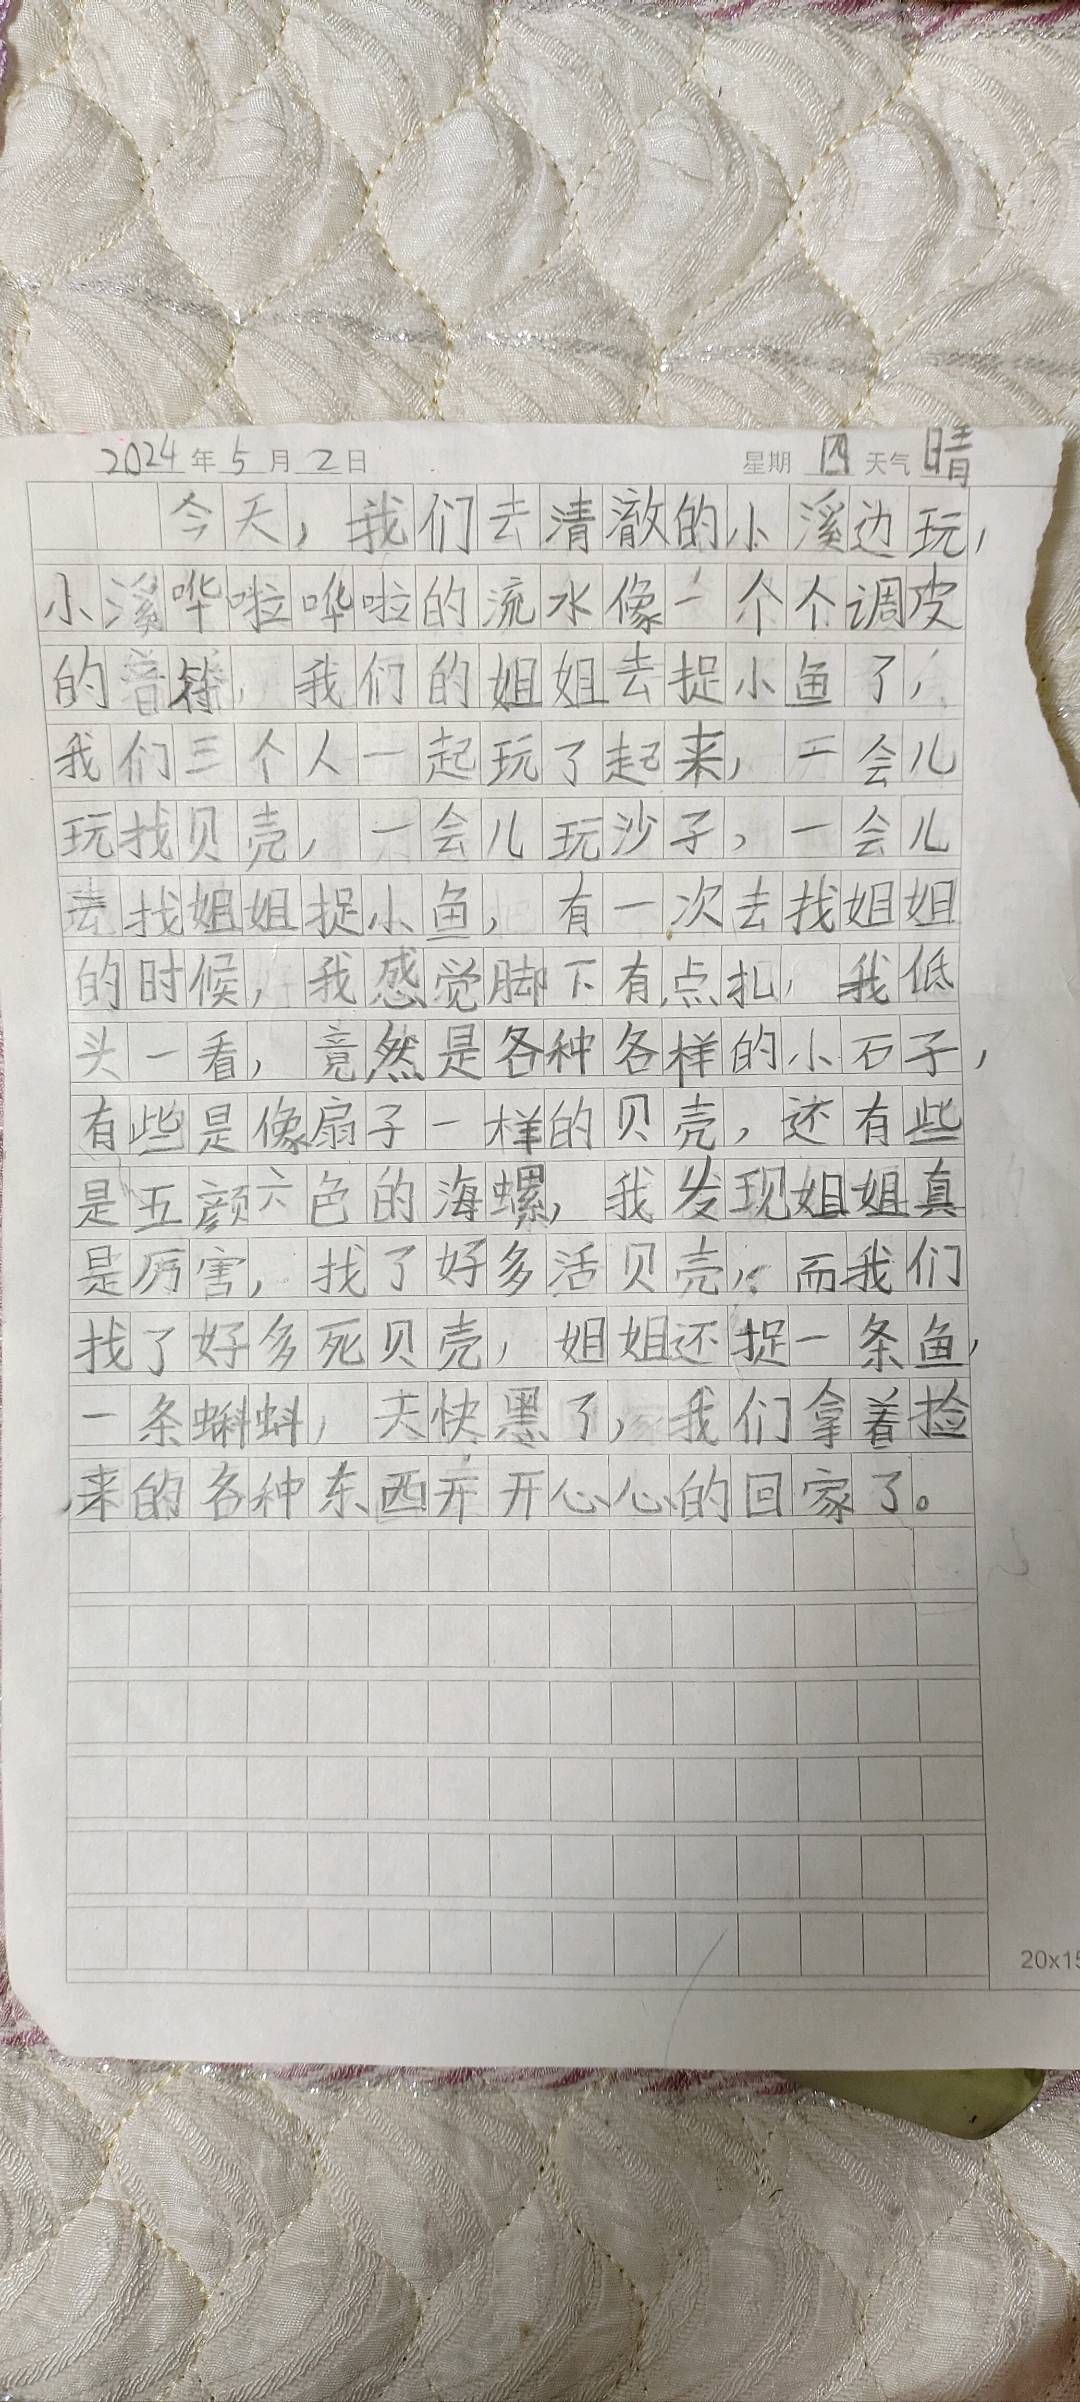 2024年5月2日 星期四 天气晴
今天，我们去清澈的小溪边玩，
小溪哗啦哗啦的流水像一个个调皮
的音符，我们的姐姐去捉小鱼了，
我们三个人一起玩了起来，一会儿
玩找贝壳，一会儿玩沙子，一会儿
去找姐姐捉小鱼，有一次去找姐姐
的时候，我感觉脚下有点扎，我低
头一看，竟然是各种各样的小石子，
有些是像扇子一样的贝壳，还有些
是五颜六色的海螺，我发现姐姐真
是厉害，找了好多活贝壳，而我们
找了好多死贝壳，姐姐还捉一条鱼，
一条蝌蚪，天快黑了，我们拿着捡
来的各种东西开开心心的回家了。
20x15